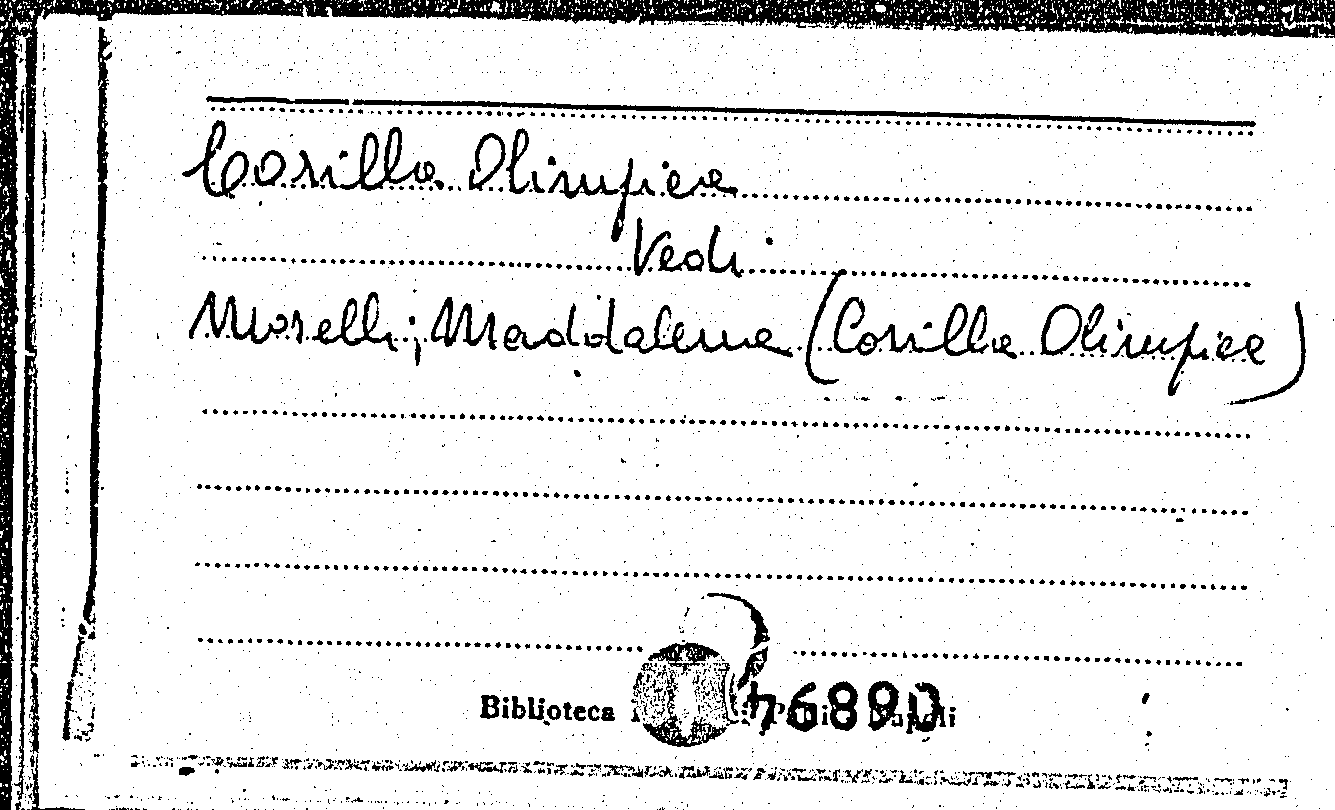 Corilla Olimpica
Vedi
Morelli, Maddalena (Corilla Olimpica)
Biblioteca
46890